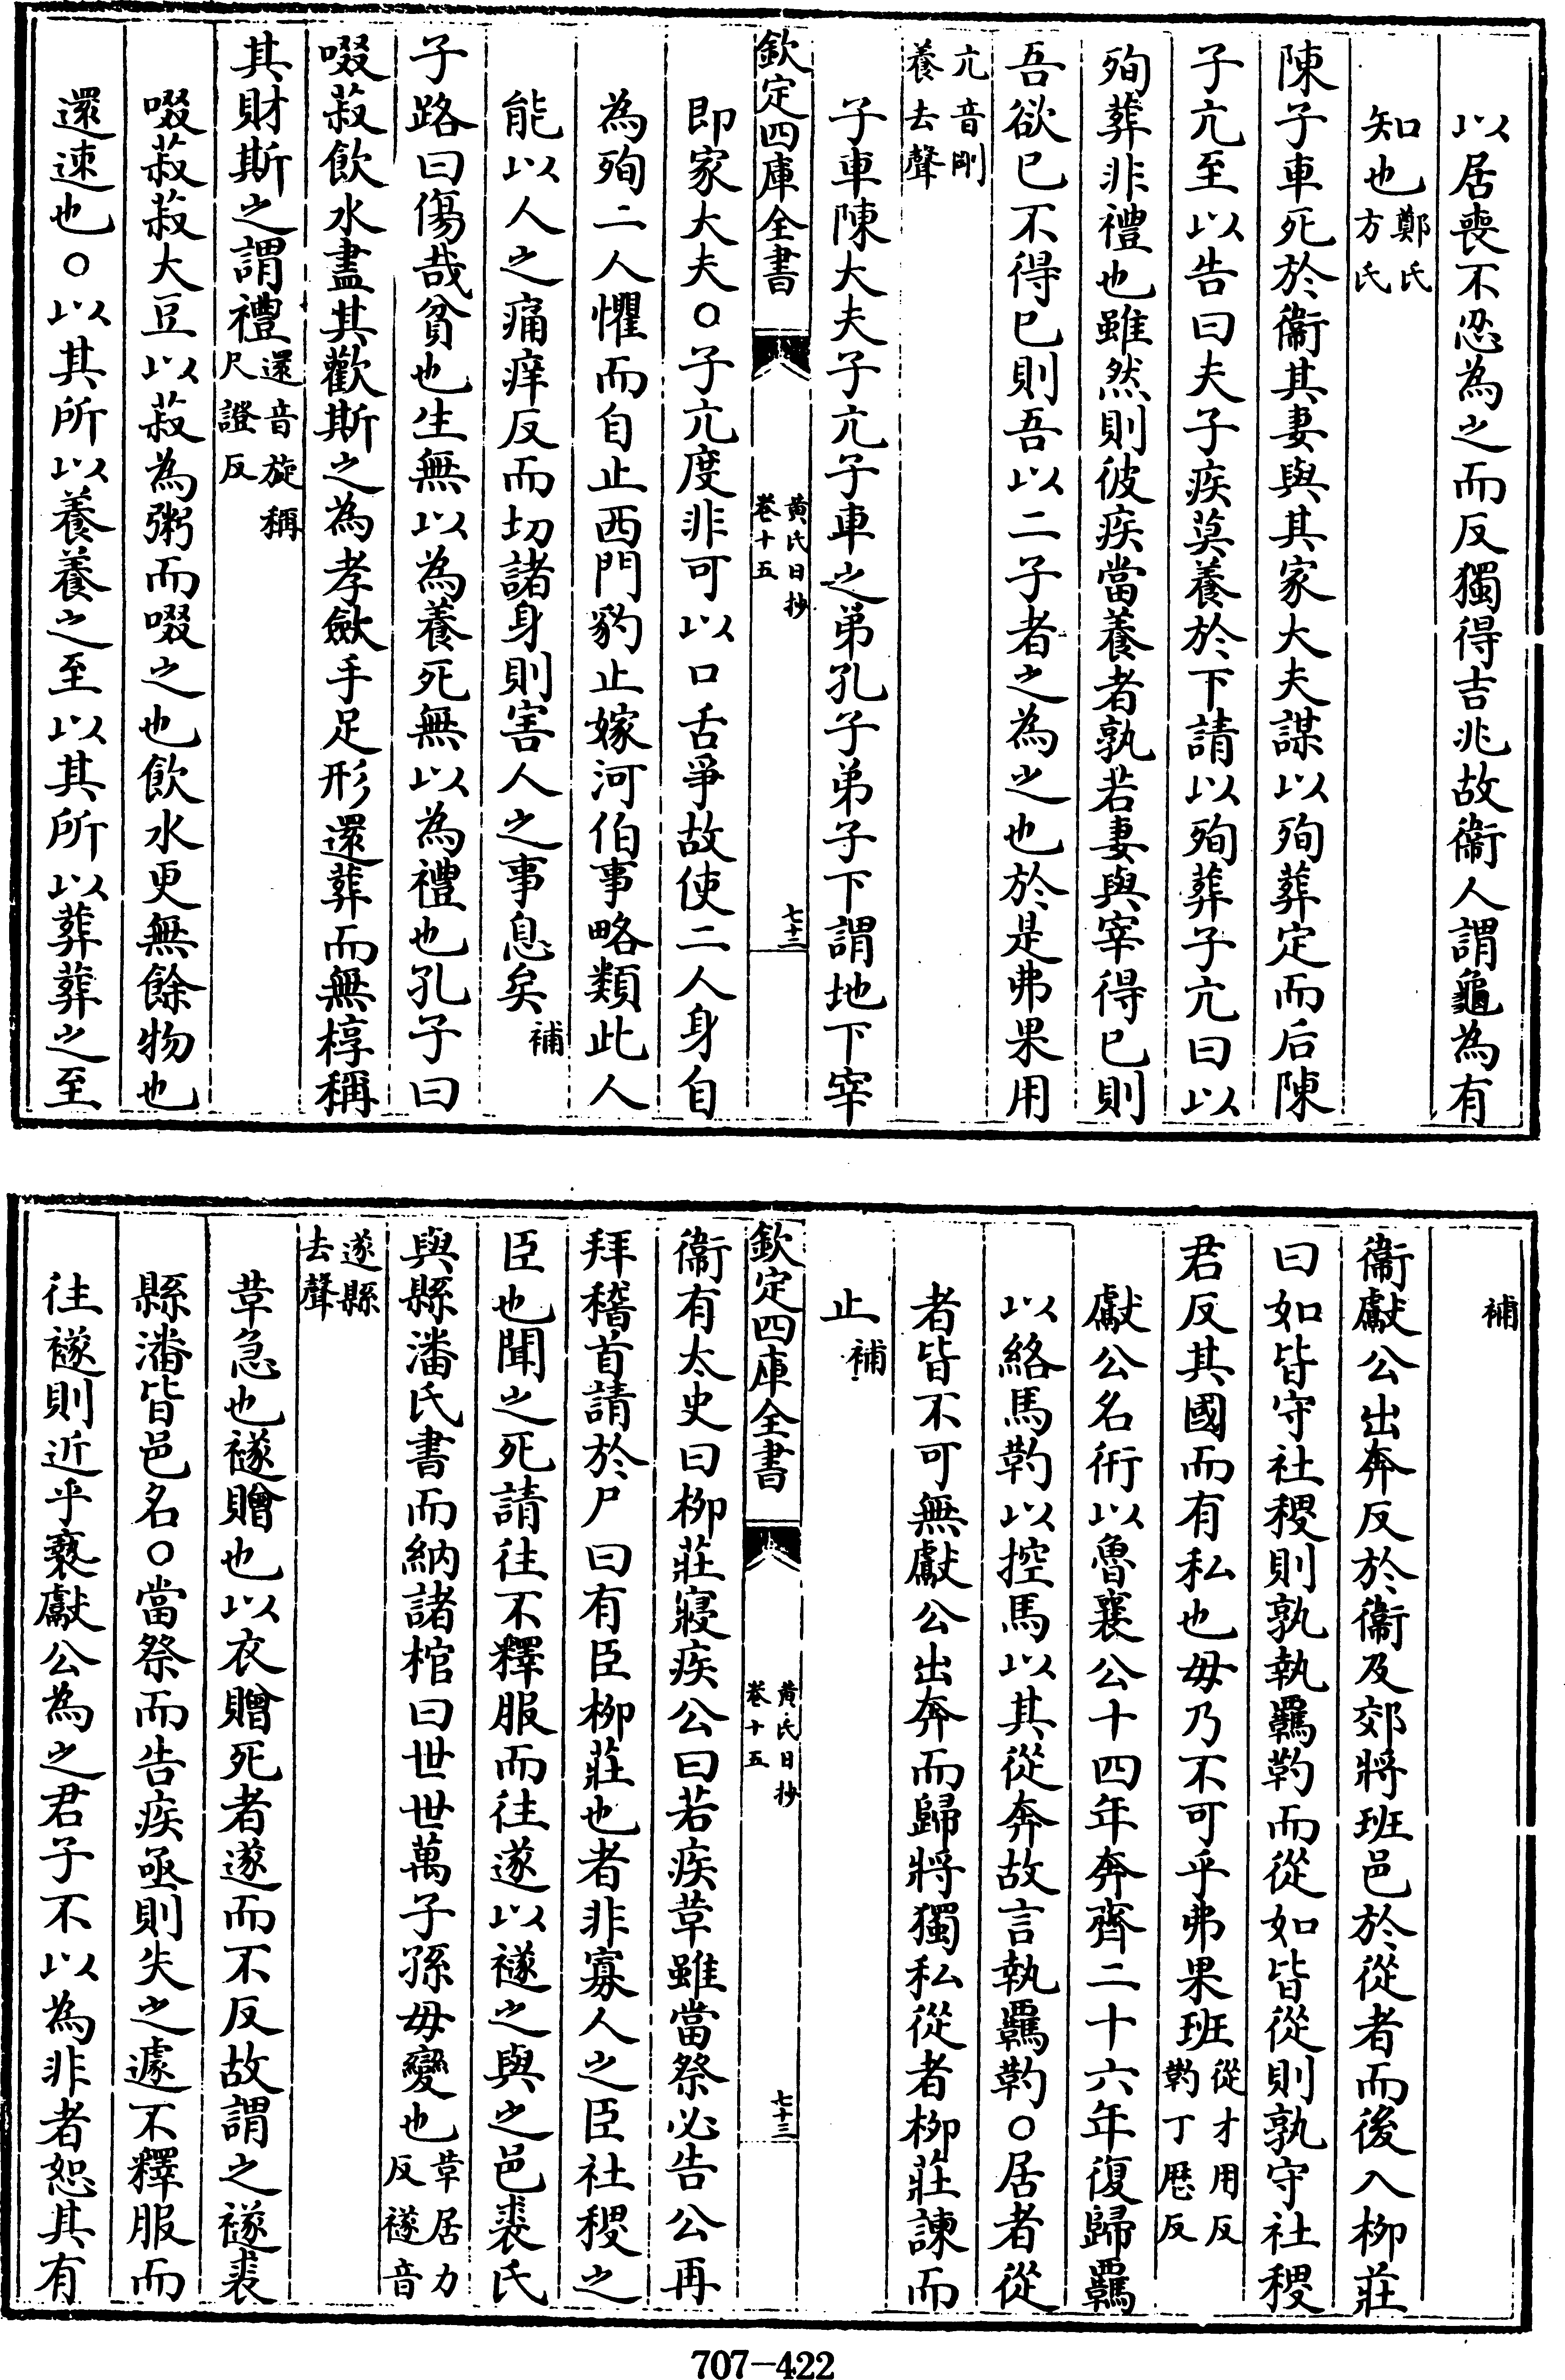 以居喪不忍為之而反獨得吉兆故衞人謂龜為有
知也鄭氏方氏
陳子車死於衞其妻與其家大夫謀以殉葬定而后陳
子亢至以告曰夫子疾莫養於下請以殉葬子亢曰以
殉葬非禮也雖然則彼疾當養者孰若妻與宰得已則
吾欲已不得已則吾以二子者之為之也於是弗果用
亢音剛養去聲
子車陳大夫子亢子車之弟孔子弟子下謂地下宰
欽定四庫全書 黄氏日抄卷十五 七十三
即家大夫○子亢度非可以口舌爭故使二人身自
為殉二人懼而自止西門豹止嫁河伯事略類此人
能以人之痛痒反而切諸身則害人之事息矣補
子路曰傷哉貧也生無以為養死無以為禮也孔子曰
啜菽飲水盡其歡斯之為孝斂手足形還葬而無椁稱
其財斯之謂禮還音旋稱尺證反
啜菽菽大豆以菽為粥而啜之也飲水更無餘物也
還速也○以其所以養養之至以其所以葬葬之至
補
衞獻公出奔反於衞及郊將班邑於從者而後入栁莊
曰如皆守社稷則孰執羈靮而從如皆從則孰守社稷
君反其國而有私也毋乃不可乎弗果班從才用反靮丁厯反
獻公名衎以魯襄公十四年奔齊二十六年復歸羈
以絡馬靮以控馬以其從奔故言執羈靮○居者從
者皆不可無獻公出奔而歸將獨私從者栁莊諫而
止補
欽定四庫全書 黄氏日抄卷十五 七十三
衞有太史曰栁莊寢疾公曰若疾革雖當祭必告公再
拜稽首請於尸曰有臣栁莊也者非寡人之臣社稷之
臣也聞之死請往不釋服而往遂以襚之與之邑裘氏
與縣潘氏書而納諸棺曰世世萬子孫毋變也革居力反襚音
遂縣去聲
革急也襚贈也以衣贈死者遂而不反故謂之襚裘
縣潘皆邑名○當祭而告疾亟則失之遽不釋服而
往襚則近乎䙝獻公為之君子不以為非者恕其有
707-422